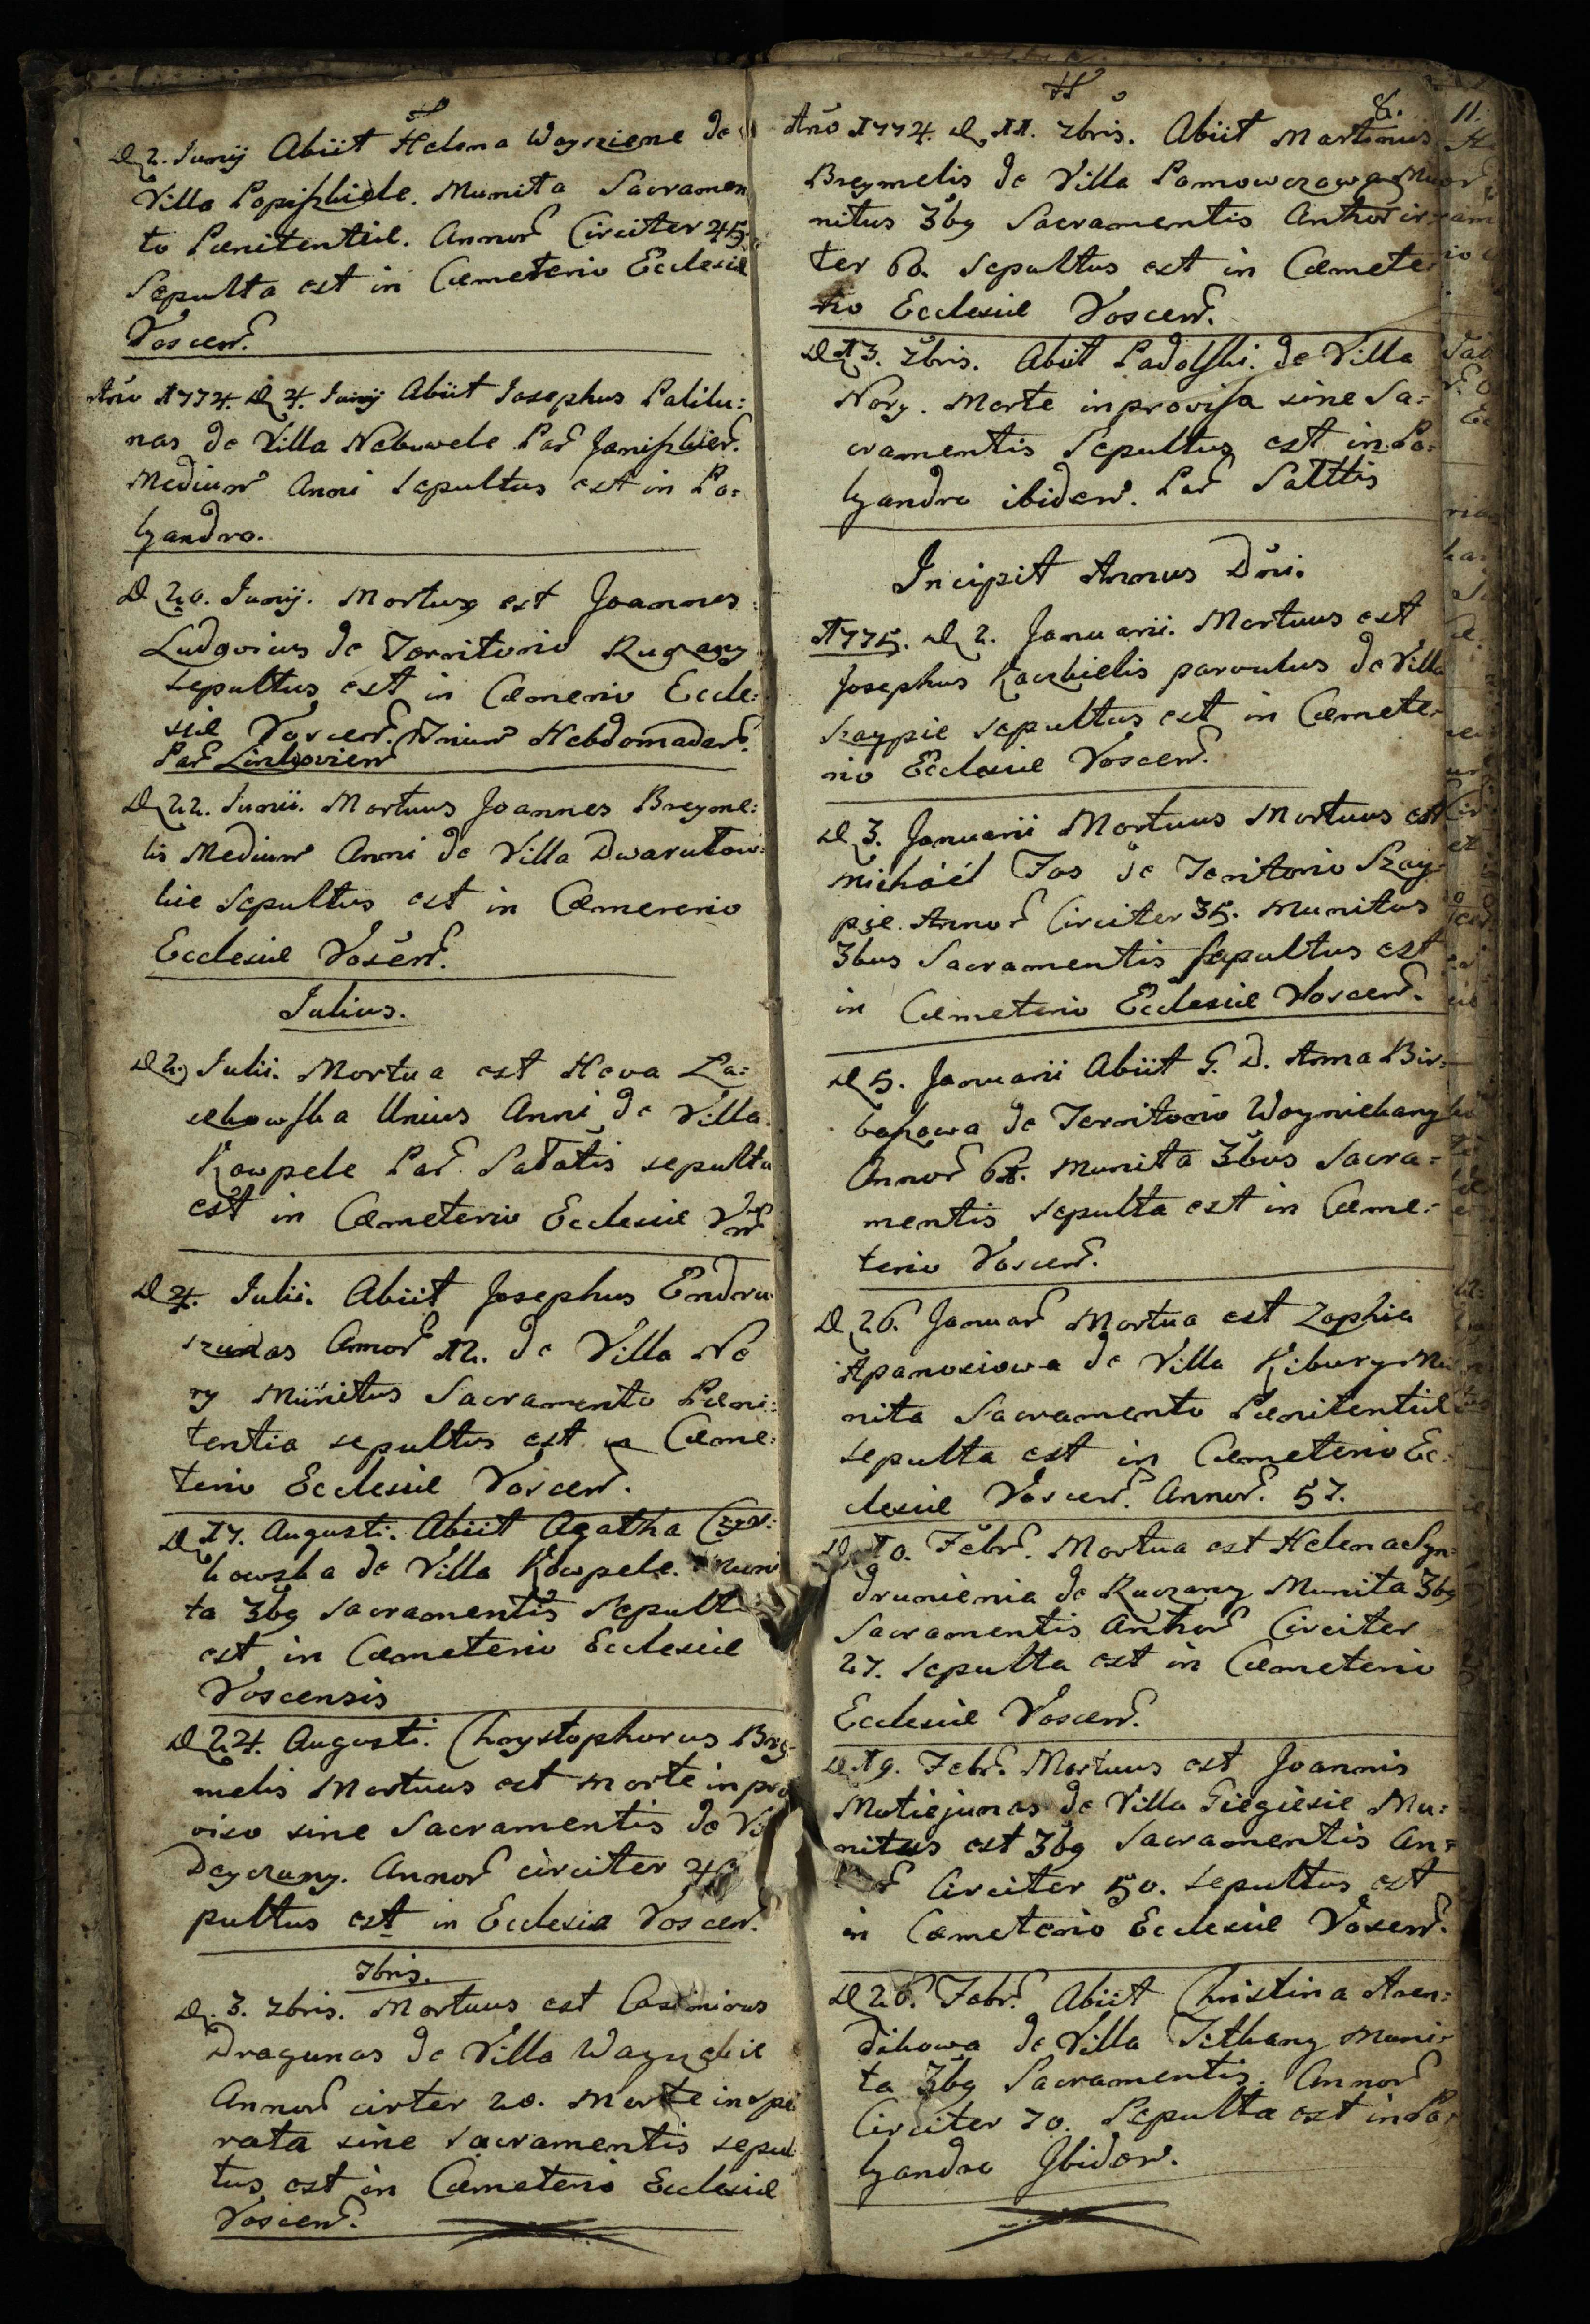 D 2. Junij Abiit Helena Woysziene de
Villa Popiszkiele. Munita Sacramen
to Pœnitentiæ. Annor Circiter 45.
Sepulta est in Cœmeterio Ecclesiæ
Voscen.
Ano 1774. D 4. Junij Abiit Josephus Palilu:
nas de Villa Nebuwele Par Janiszkien.
Medium Anni Sepultus est in Po:
lyandro.
D 20. Junij. Mortuus est Joannes
Ludgovius de Territorio Ruczany
sepultus est in Cœmerio Eccle:
siæ Voscen. Trium Hebdomadar.
Par Linkovien
D 22. Junii. Mortuus Joannes Breyme:
lis Medium Anni de Villa Dwarutow:
kie Sepultus est in Cœmererio
Ecclesiæ Voscen.
Julius.
D 2. Julii. Mortua est Heva La:
ckowska Unius Anni de Villa
Kowpele Par Satatis sepulta
est in Cœmeterio Ecclesiæ
D 4. Julii. Abiit Josephus Endru
szunas Annor 12. de Villa No
ry Munitus Sacramento Pœni:
tentia sepultus est in Cœme:
terio Ecclesiæ Voscen.
D 17. Augusti. Abiit Agatha
kowska de Villa Kowpele. Muni
ta 3bg Sacramentis Sepult
est in Cœmeterio Ecclesiæ
Voscensis
D 24. Augusti. Chrystophorus Brey
melis Mortuus est morte inpro
viso sine Sacramentis de Vi
Deyczuny. Annor circiter 40
pultus est in Ecclesia Voscen.
7bris.
D. 3. 7bris. Mortuus est Casimirus
Dragunas de Villa
Annor cirter 20. Morte inspe
rata sine Sacramentis sepul
tus est in Cœmeterio Ecclesiæ
Voscen.
8. 11.
Ano 1774. D 11. 7bris. Abiit Martinus
Breymelis de Villa Pomowczowa Mu
nitus 3bg Sacramentis Annor cir
ter 60. Sepultus est in Cœmete
rio Ecclesiæ Voscen.
D 13. 7bris. Abiit Padolski. de Villa
Nory. Morte inprovisa sine Sa:
cramentis Sepultus est in Po:
lyandro ibidem. Par Sattis
Incipit Annus Dni.
1775. D 2. Januarii. Mortuus est
Josephus Kaczkielis parvulus de Villa
Szaypie sepultus est in Cœmete
rio Ecclesiæ Voscen.
D 3. Januarii Mortuus Mortuus est
Michael Jos de Teritorio Szay
pie. Annor Circiter 35. Munitus
3bus Sacramentis Sepultus est
in Cœmeterio Ecclesiæ Voscen.
D 5. Januarii Abiit G. D. Anna Bir:
baszowa de Territorio Woyniekany
Annor 61. Munita 3bus Sacra:
mentis sepulta est in Cœme:
terio Voscen.
D 26. Januar Mortua est Zophia
Apanosiowa de Villa Kibury Mu
nita Sacramento Pœnitentiæ
sepulta est in Cœmeterio Ec:
clesiæ Voscen. Annor. 57.
D 10. Febr. Mortua est Helena Syn:
drunienia de Ruczany Munita 3bg
Sacramentis Annor Circiter
27. Sepulta est in Cœmeterio
Ecclesiæ Voscen.
D 19. Febr. Mortuus est Joannis
Matiejunas de Villa Giegiesie Mu:
nitus est 3bg Sacramentis An:
Circiter 50. Sepultus est
in Cœmeterio Ecclesiæ Voscen.
D 26. Febr. Abiit Christina Aren:
dikowa de Villa Titkany Muni
ta 3bg Sacramentis. Annor
Circiter 70. Sepulta est in Po
lyandro Ibidem.